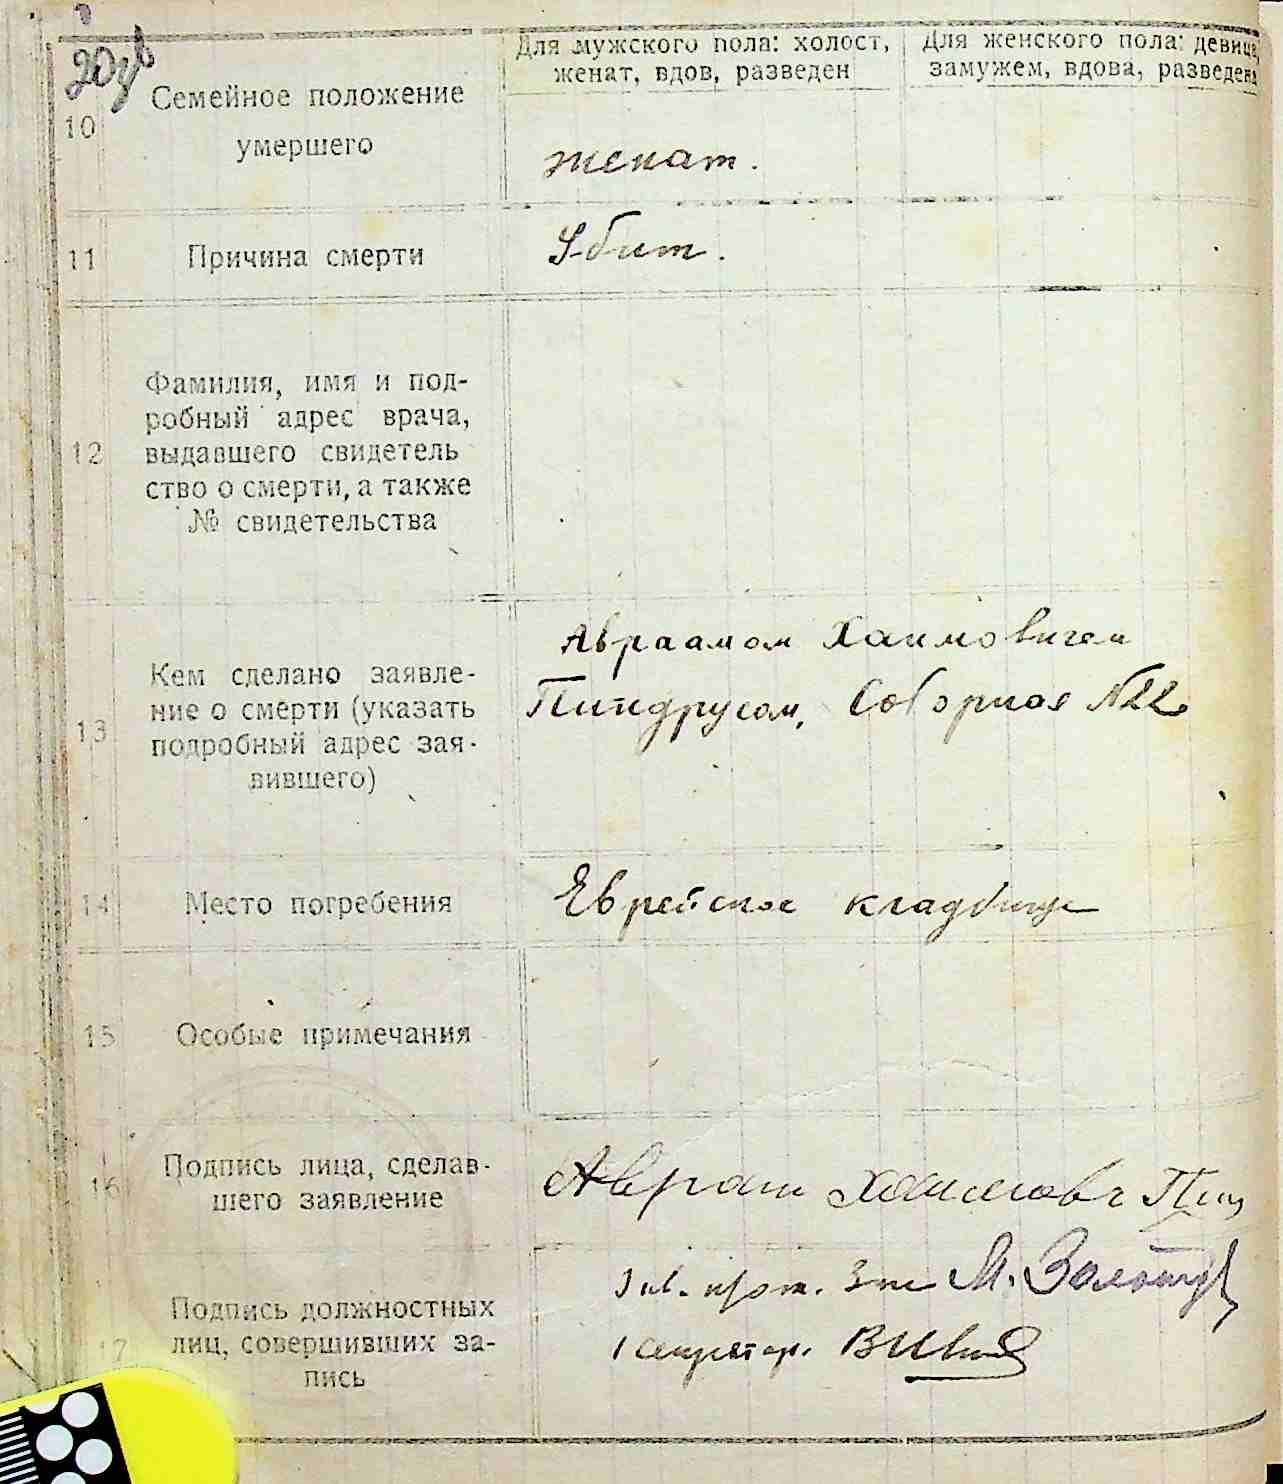 20
Для мужского пола: холост,
женат, вдов, разведен
Для женского пола: девица,
замужем, вдова, разведена
10
Семейное положение
умершего
женат.
11
Причина смерти
Убит.
12
Фамилия, имя и под-
робный адрес врача,
выдавшего свидетель
ство о смерти, а также
№ свидетельства
13
Кем сделано заявле-
ние о смерти (указать
подробный адрес зая-
вившего)
Авраамом Хаимовичем
Пиндрусом, Соборная №22
14
Место погребения
Еврейское кладбище
15
Особые примечания
16
Подпись лица, сделав-
шего заявление
Авраам Хаимович
17
Подпись должностных
лиц, совершивших за-
пись
Зав. М.
секретар.